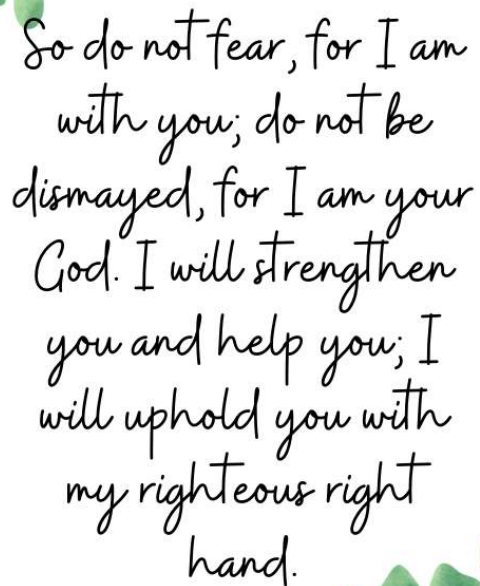 So do not fear, for I am
with you; do not be
dismayed, for I am your
God. I will strengthen
you and help you; I
will uphold you with
my righteous right
hand.